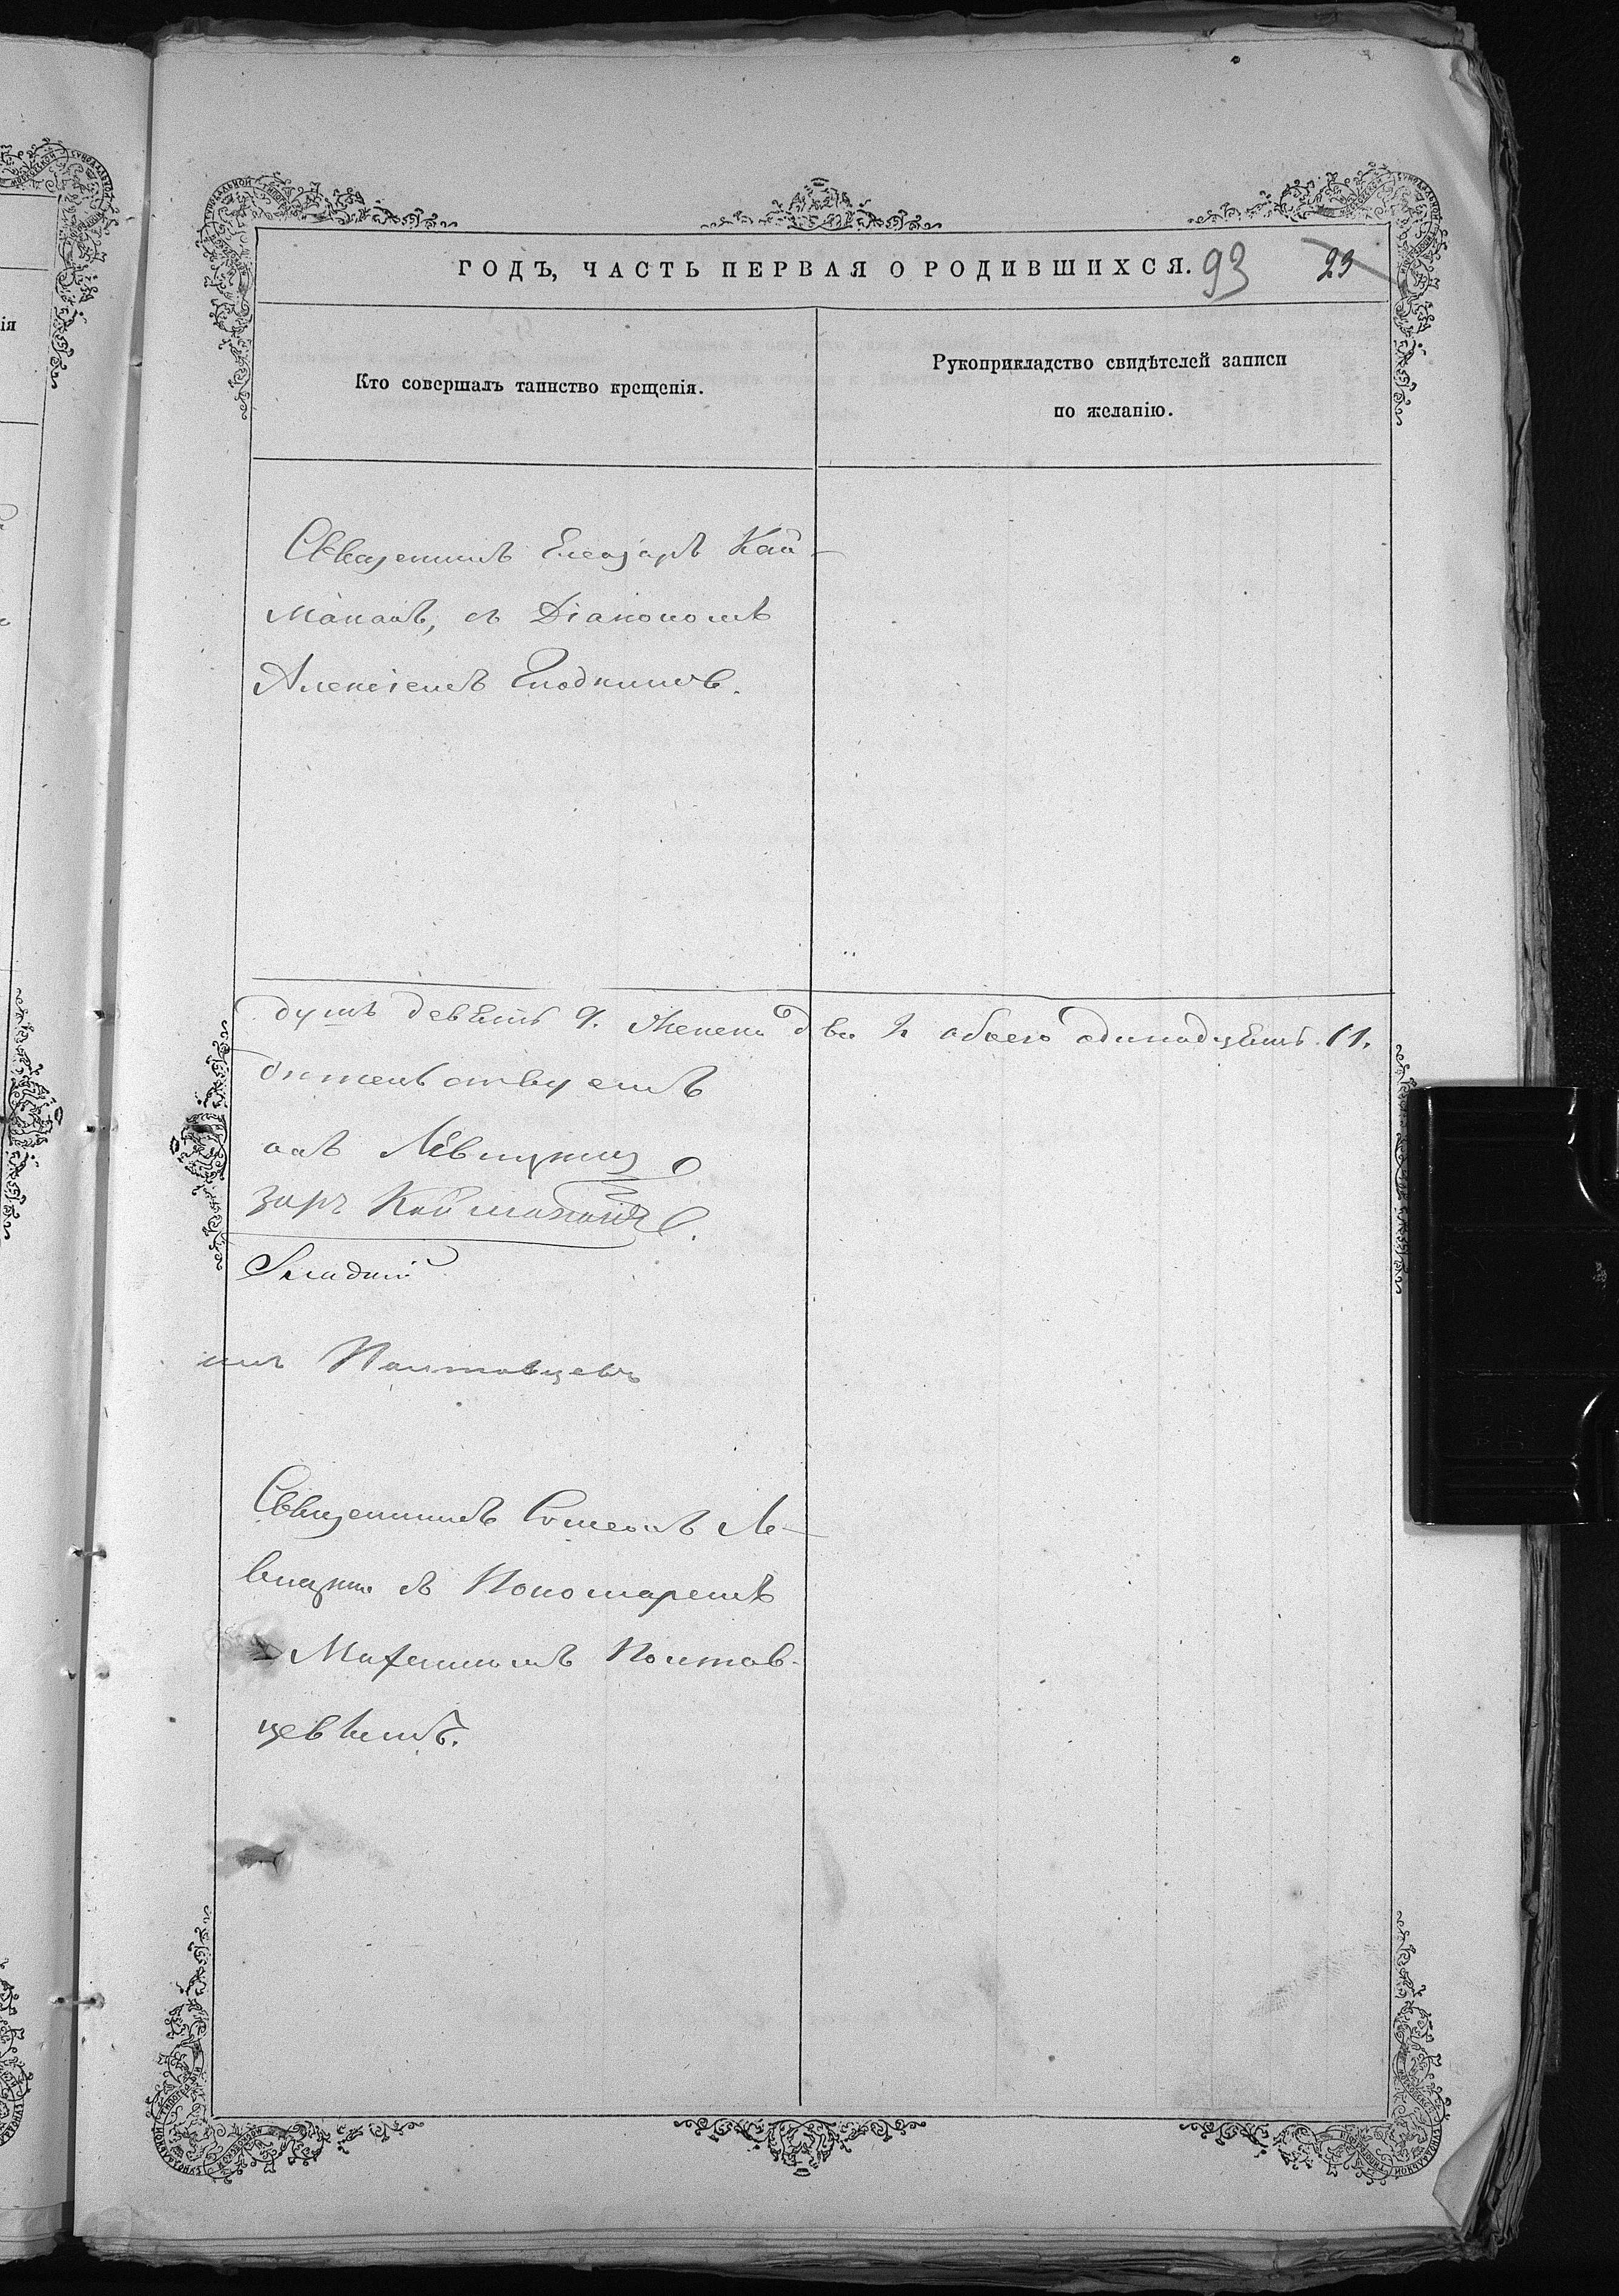 ГОДЪ, ЧАСТЬ ПЕРВАЯ О РОДИВШИХСЯ. 93 23
Кто совершалъ таинство крещенія.
Рукоприкладство свидѣтелей записи
по желанію.
Священникъ Елеазаръ Кай-
макань, съ Діакономъ
Алексіемъ
душъ девять 9. Женска два 2 обоего одинадцать 11.
дительствуемъ
онъ Левицкій
заръ Каймаканъ
имъ Полтавцевъ
Священникъ Симеонъ Ле-
вицкій съ Пономаремъ
Полтав-
цевымъ.